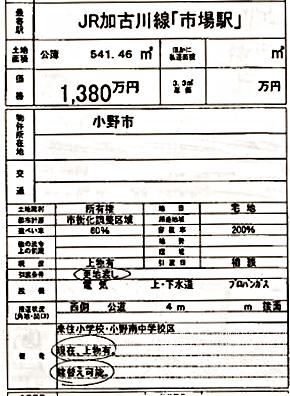 最寄駅 JR加古川線「市場駅」
土地面積 公簿 541.46 ㎡ ほかに私道面積 ㎡
価格 1,380万円 3.3㎡単価 万円
物件所在地 小野市
交通
土地権利 所有権 地目 宅地
都市計画 市街化調整区域 用途地域
建ぺい率 60% 容積率 200%
地勢
現況 上物有 引渡日 相談
引渡条件 更地渡し
設備 電気 上・下水道 プロパンガス
接道状況 西側 公道 4m m 接面
来住小学校・小野南中学校区
備考 現在、上物有。
建替え可能。